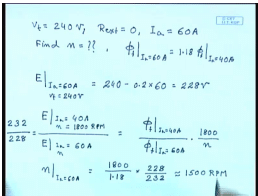 V_t = 240 V, R_ext = 0, I_a = 60A
Find n = ??, ϕ_f|I_a=60A = 1.18 ϕ_f|I_a=40A
E|I_a=60A = 240 - 0.2×60 = 228V
V_t=240V
232/228 = E|I_a=40A n=1800 RPM / E|I_a=60A n = ϕ_f|I_a=40A / ϕ_f|I_a=60A · 1800/n
n|I_a=60A = 1800/1.18 × 228/232 ≈ 1500 RPM